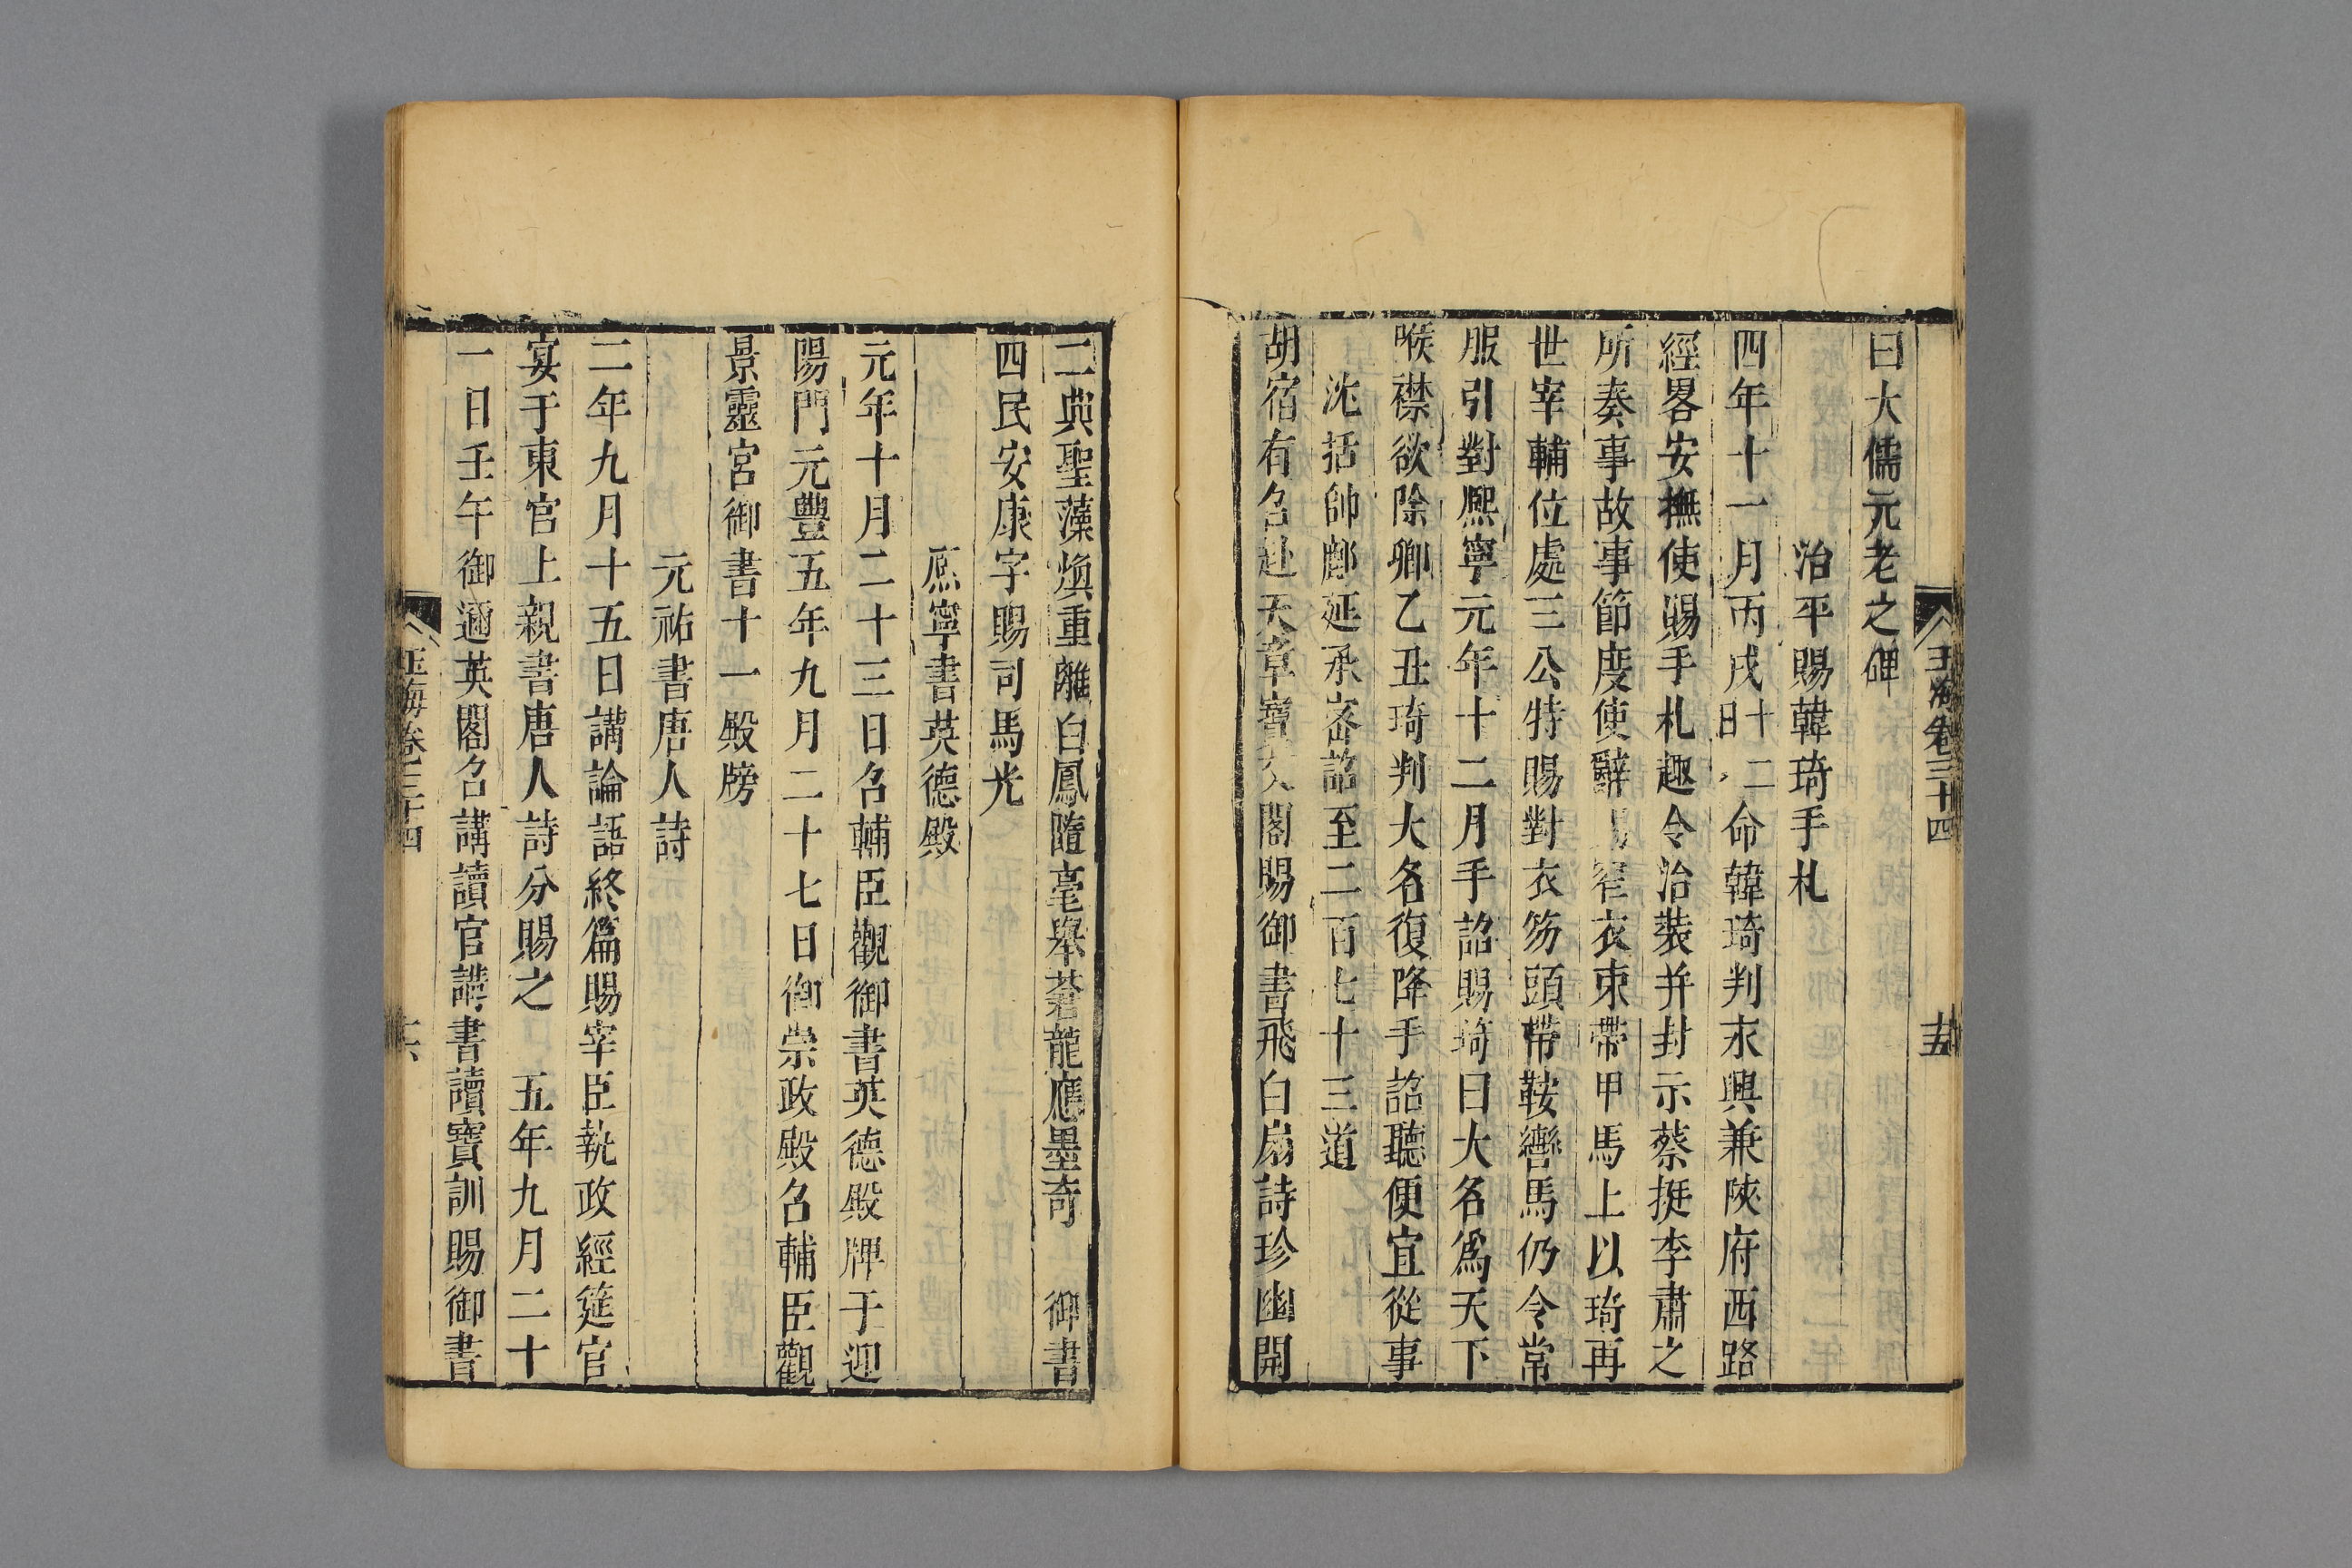 玉海卷三十四
十五
曰大儒元老之碑
治平賜韓琦手札
四年十一月丙戌十二日命韓琦判永興兼陝府西路
經畧安撫使賜手札趣令治裝并封示蔡挺李肅之
所奏事故事節度使辭窄衣束帶甲馬上以琦再
世宰輔位處三公特賜對衣笏頭帶鞍轡馬仍令常
服引對熈寧元年十二月手詔賜琦曰大名爲天下
喉襟欲除卿乙丑琦判大名復降手詔聽便宜從事
沈括帥鄜延承宻詔至二百七十三道
胡宿有召赴天章寶文閣賜御書飛白扇詩珍幽開
二典聖藻煥重離白鳳隨毫舉蒼龍應墨奇 御書
四民安康字賜司馬光
熈寧書英德殿
元年十月二十三日召輔臣觀御書英德殿牌于迎
陽門元豐五年九月二十七日御崇政殿召輔臣觀
景靈宮御書十一殿牓
元祐書唐人詩
二年九月十五日講論語終篇賜宰臣執政經筵官
宴于東宮上親書唐人詩分賜之 五年九月二十
一日壬午御邇英閣召講讀官講書讀寶訓賜御書
玉海卷三十四
十六